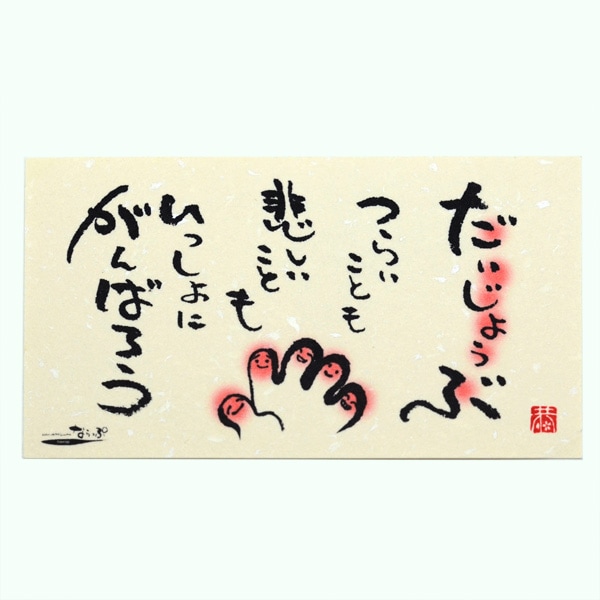 だいじょうぶ
つらい
ことも
悲しい
ことも
いっしょに
がんばろう